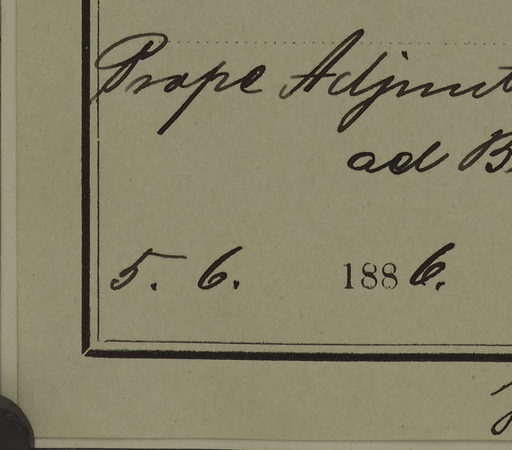 Prope Adjmut
ad B
5. 6. 1886.